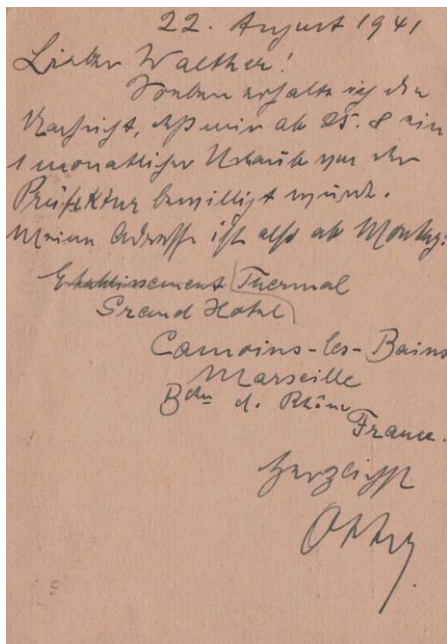 22. August 1941
Lieber Walther!
Soeben erhalte ich die
Nachricht, daß mir ab 25. 8 ein
1 monatlicher Urlaub von der
Präfektur bewilligt wurde.
Meine Adresse ist also ab Montag:
Etablissement Thermal
Grand Hotel
Camoins-les-Bains
Marseille
d. Rhône
France.
Herzlichst